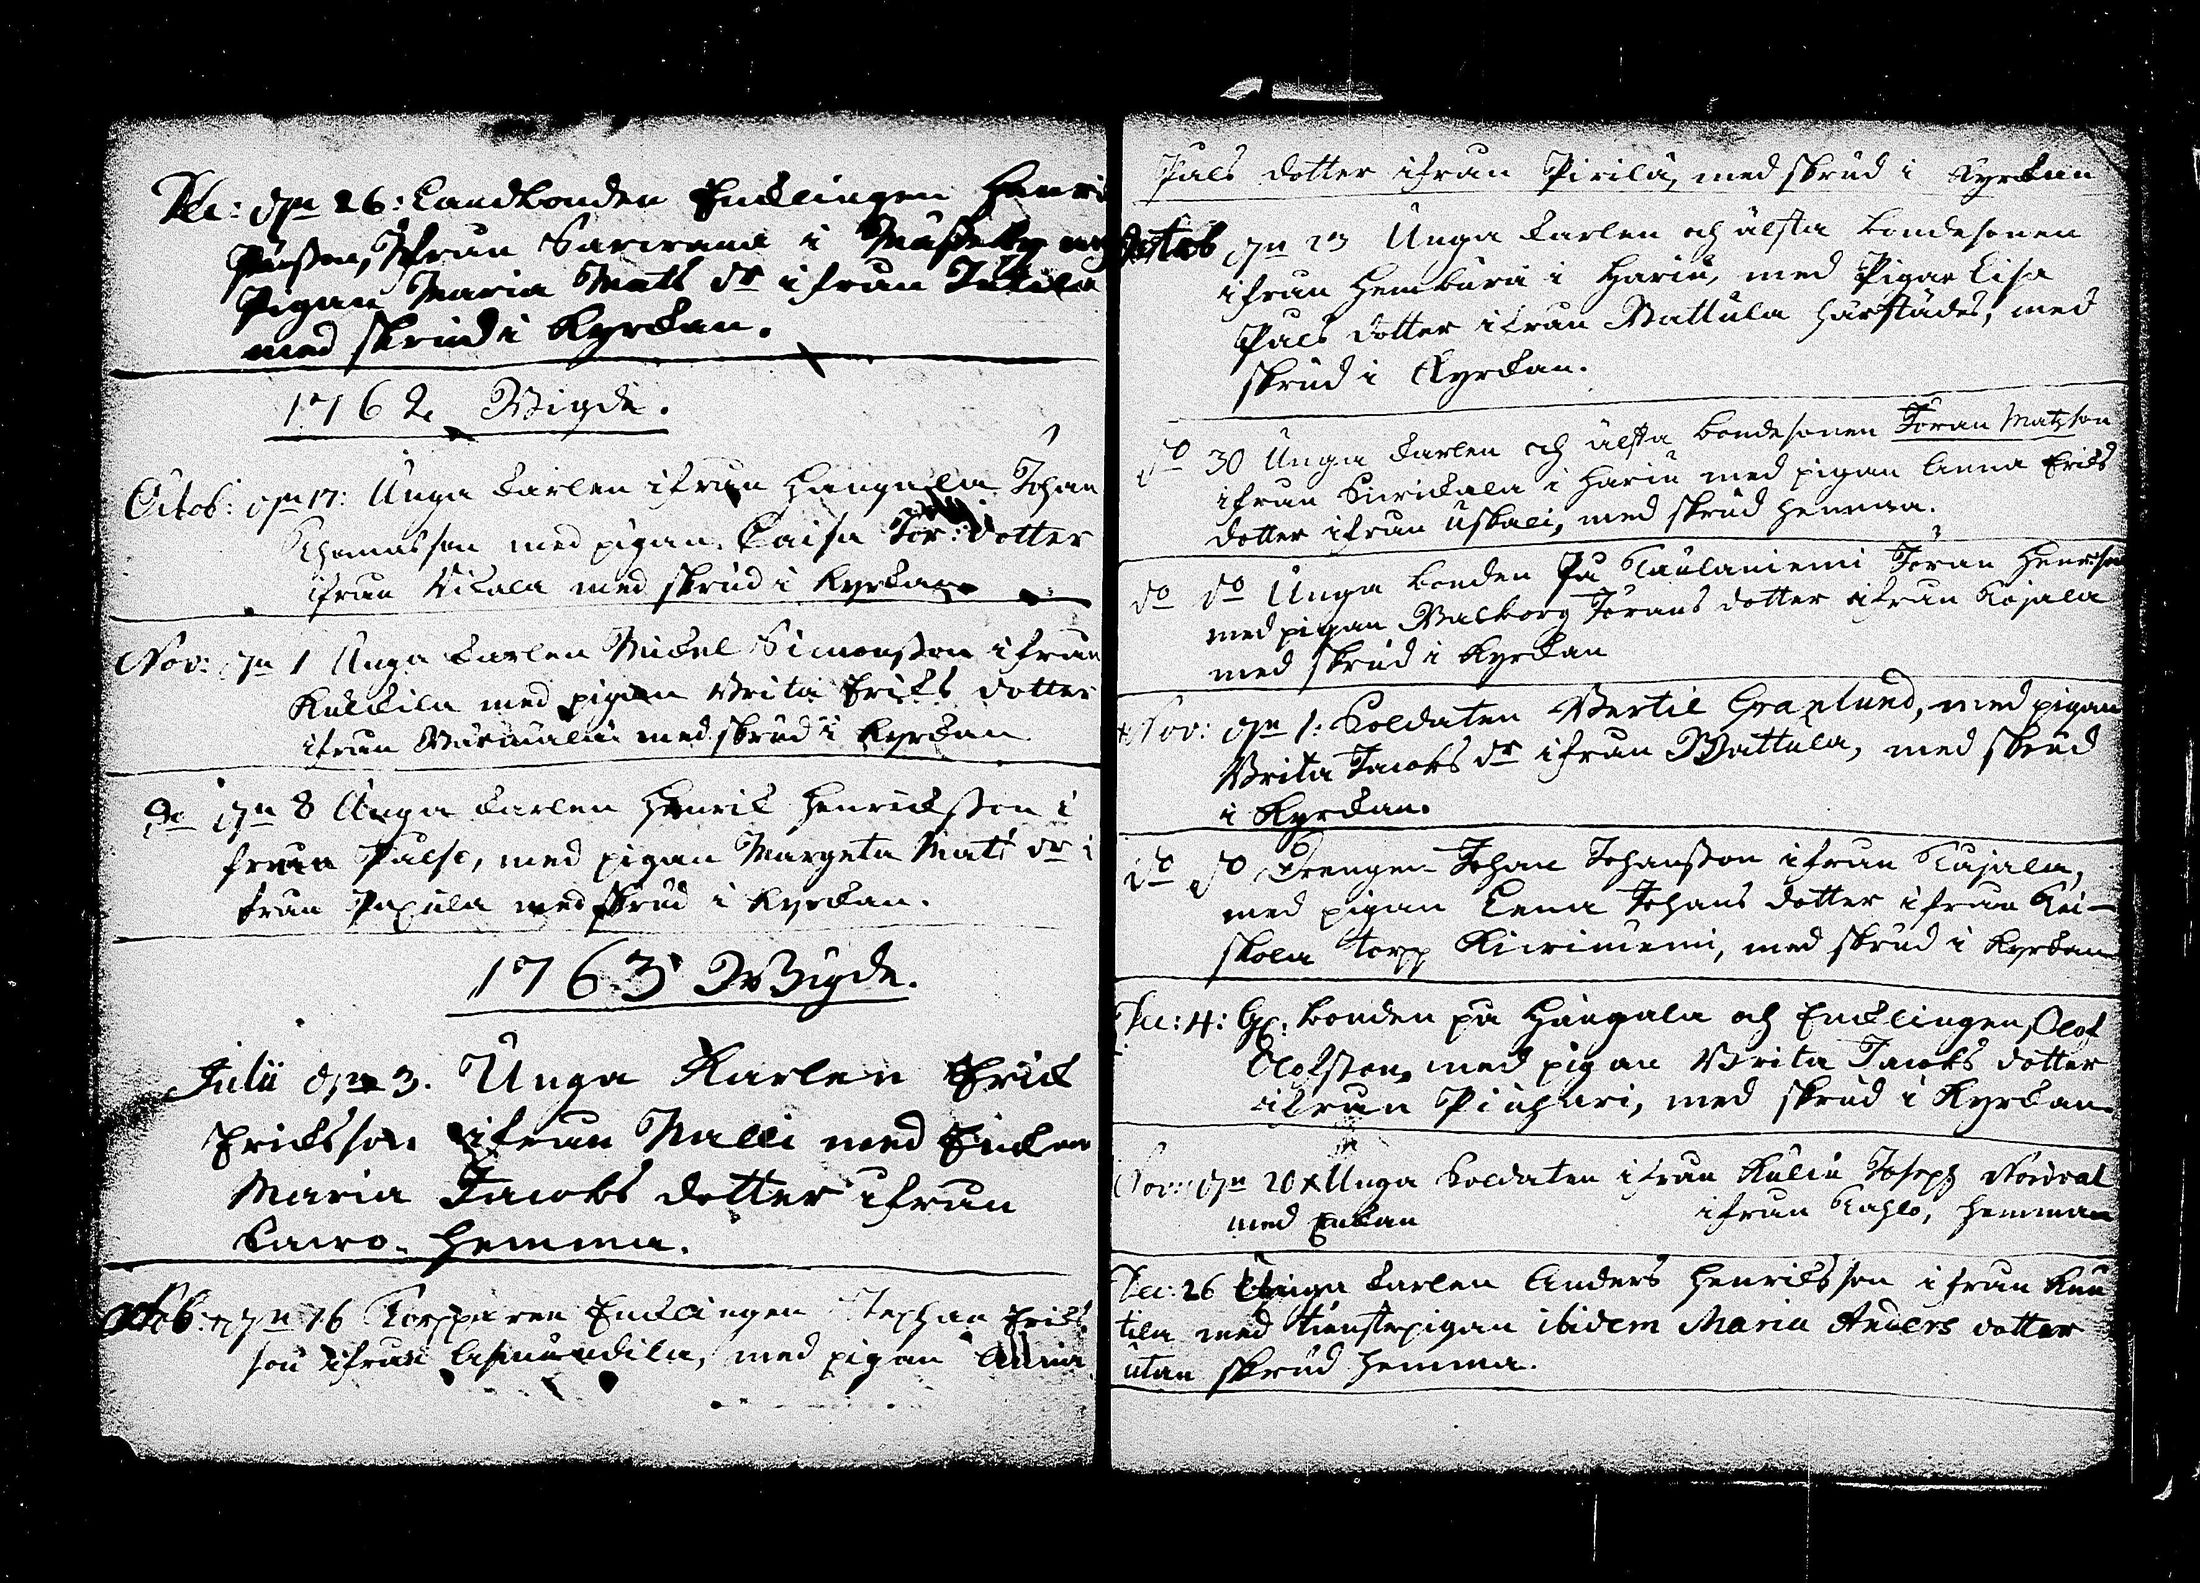 Dec: d: 26: Landbonden Encklingen Henri
ifrån Sarvana i Muskeby
Pigan Maria Mats dr ifrån Tukila
med skrud i Kyrckan.
1762 Wigde.
Octob: d: 17: Unga karlen ifrån Hangala Johan
Thomasson med pigan Caisa Jör: dotter
ifrån Wikala med skrud i kyrckan
Nov: d 1 Unga karlen Mickel Simonsson ifrån
Kulckila med pigan Brita Ericks dotter
ifrån med skrud i kyrckan
Do d 8 Unga karlen Henrick Henricksson i
från Pulsi, med pigan Margeta Mats dr i
från Papula med skrud i kyrckan.
1763 Wigde.
Julii d 3. Unga Karlen Erick
Ericksson ifrån Nalli med Enckan
Maria Jacobs dotter ifrån
hemma.
Octob: d 16 Torpparen Encklingen Stephan Ericks
son ifrån Asmundila, med pigan Anna
Påls dotter ifrån Pirilä, med skrud i Kyrckan
Octob d 23 Unga karlen och älsta bondesonen
ifrån Hemburä i Hariu, med Pigan Lisa
Påls dotter ifrån Wattula härstädes, med
skrud i Kyrckan.
do 30 Unga karlen och älsta bondesonen Jöran Matzson
ifrån i Hariu med pigan Anna Ericks
dotter ifrån Uskali, med skrud hemma.
do do Unga bonden På Taulaniemi Jöran Henrson
med pigan Walborg Jörans dotter ifrån Kojala
med skrud i kyrckan
Nov: d 1: Soldaten Bertil Granlund, med pigan
Brita Jacobs dr ifrån Wattula, med skrud
i kyrckan.
do do Drengen Johan Johansson ifrån Kujala,
med pigan Lena Johans dotter ifrån Kei-
skola torp Kiviniemi, med skrud i kyrckan
Dec: 4: Gl: bonden på Hangala och Encklingen Olof
Olofsson, med pigan Brita Jacobs dotter
ifrån Piuhari, med skrud i Kyrckan.
Nov: d 20 x Unga Soldaten ifrån Kulju Joseph Nordval
med Enkan ifrån Kahlo, hemman
Dec: 26 Unga karlen Anders Henricksson ifrån Knu
tila med tienstepigan ibidem Maria Anders dotter
utan skrud hemma.